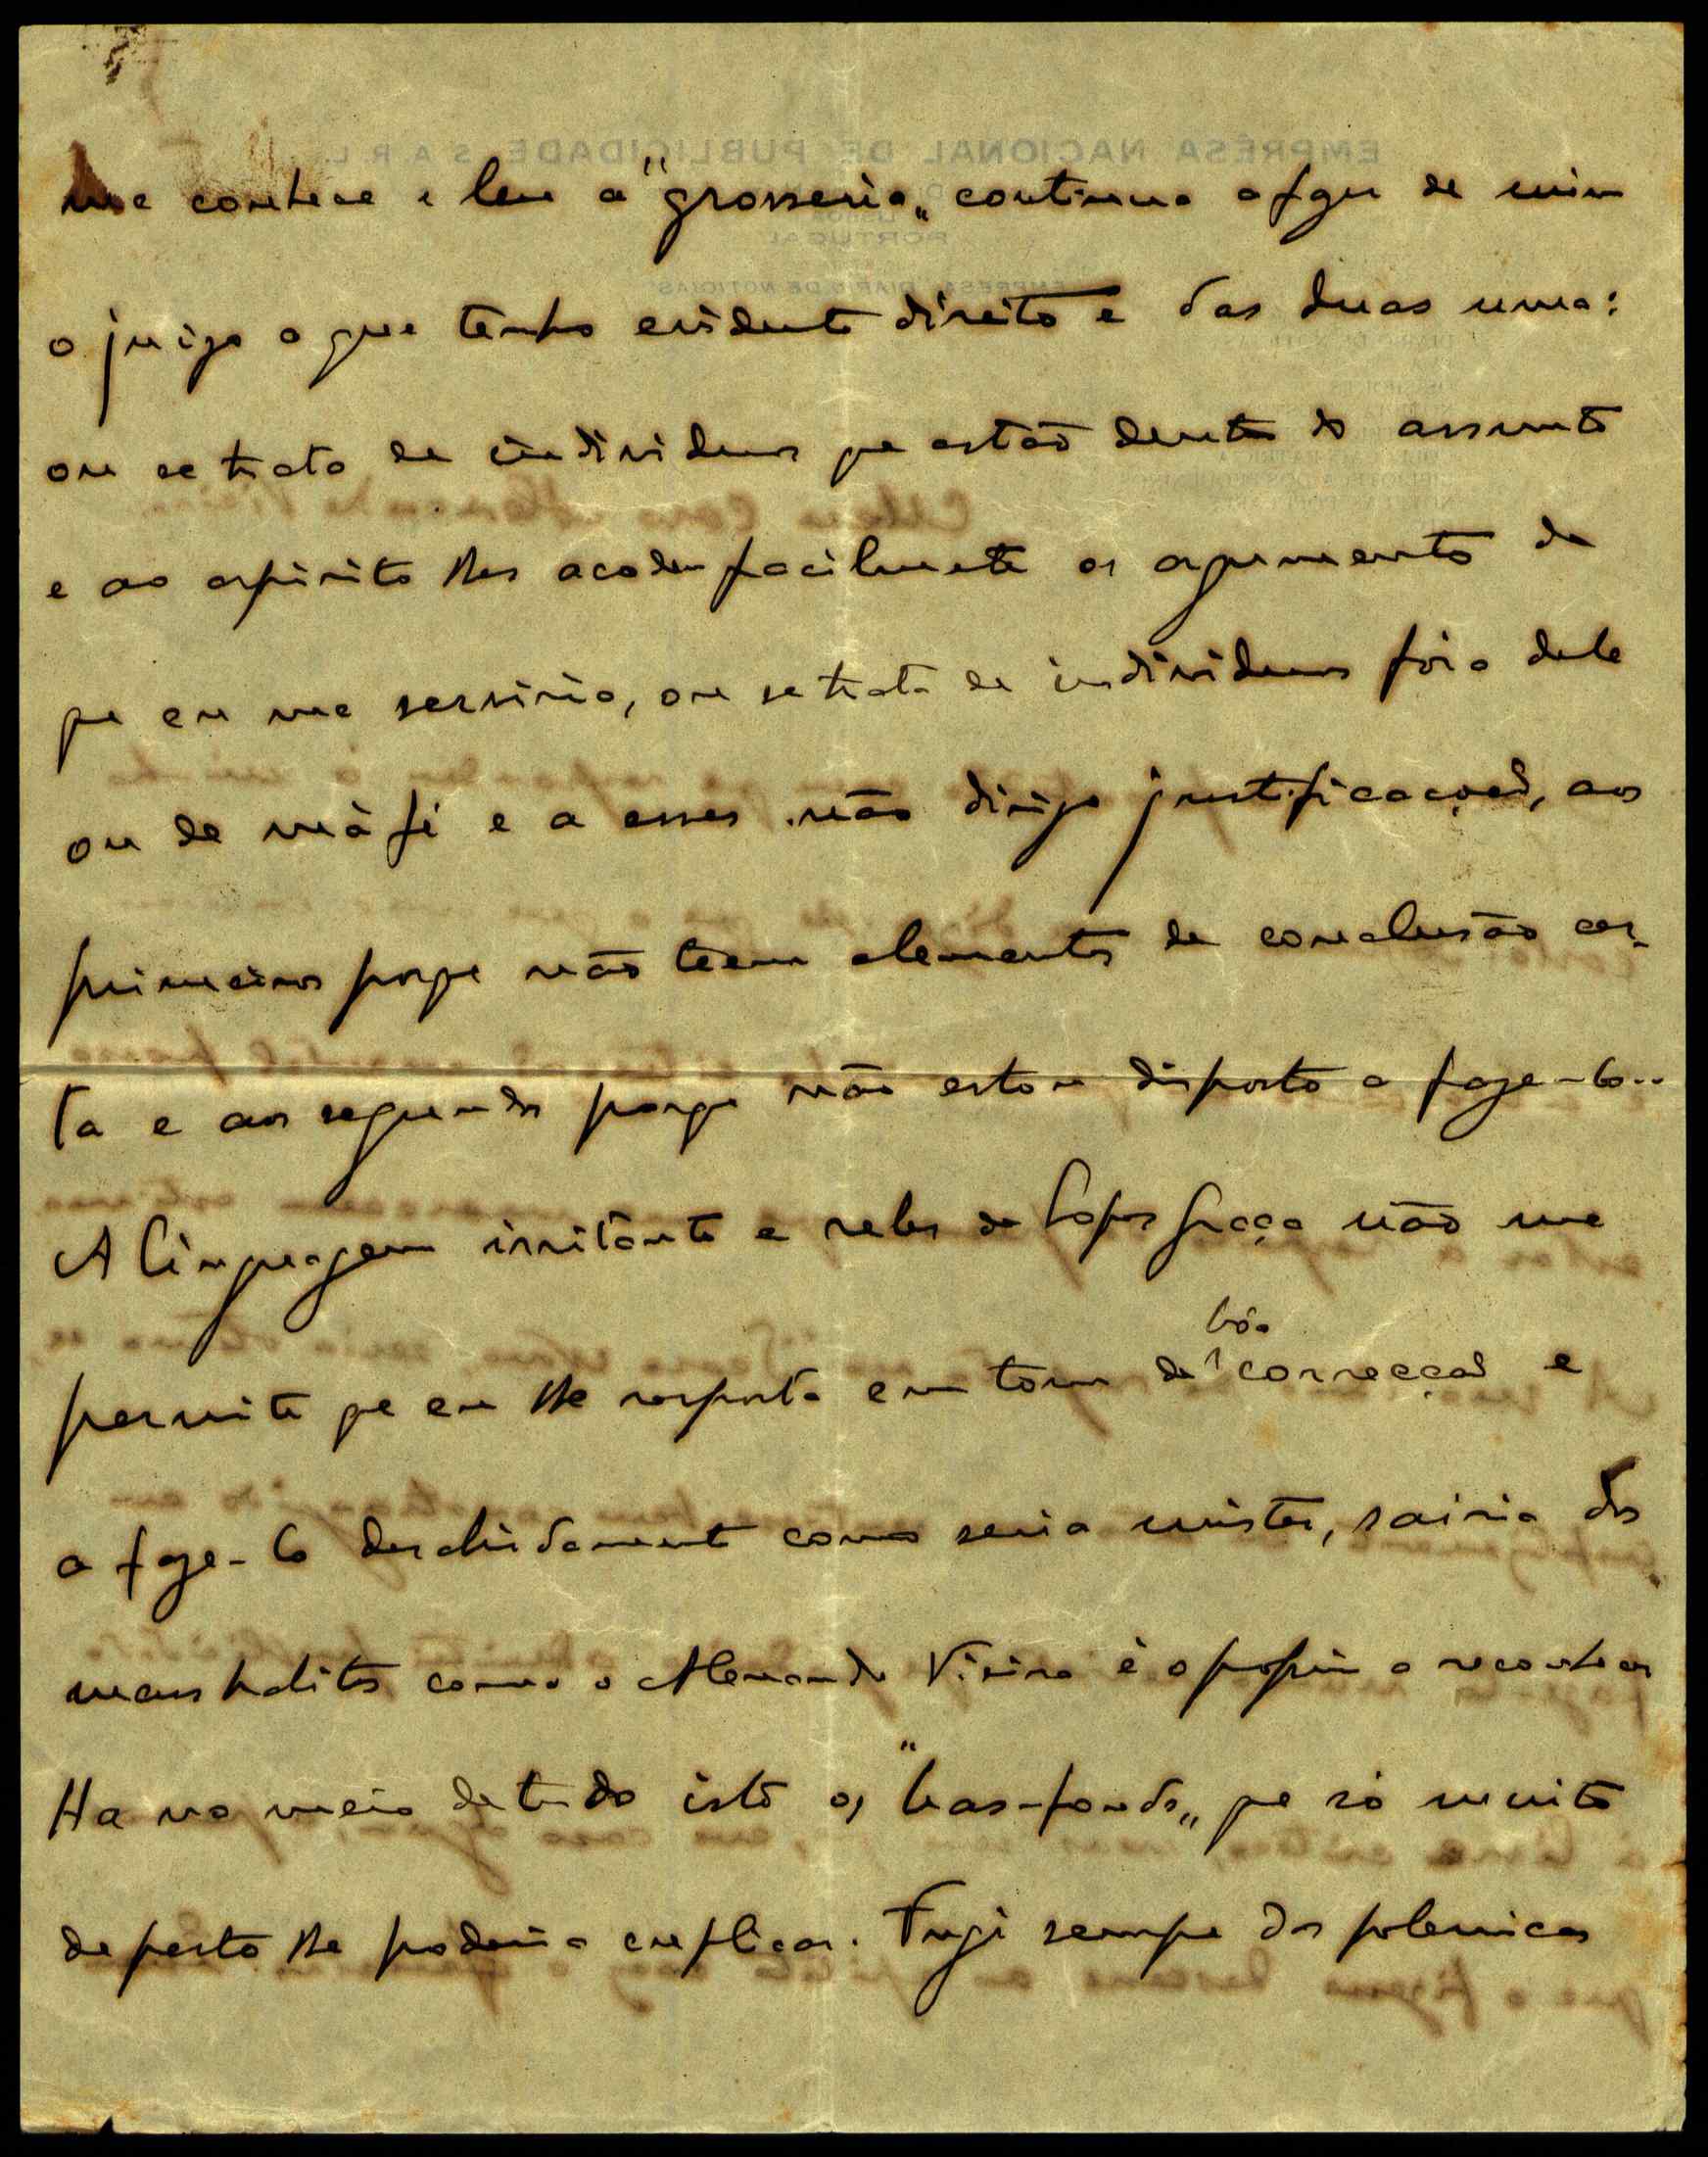 me conhece e leu a "grosseria„ continua a fazer de mim
o juizo a que tenho evidente direito e das duas uma:
ou se trata de individuos que estão dentro do assunto
e ao espirito lhes acodem facilmente os argumentos de
que eu me serviria, ou se trata de individuos fóra dele
ou de má fé e a esses não dirijo justificações, aos
primeiros porque não teem elementos de conclusão cer-
ta e aos segundos porque não estou disposto a faze-lo..
A linguagem irritante e reles de Lopes Graça não me
permite que eu lhe responda em tom de bôa correcção e
a faze-lo desabridamente como seria mister, sairia dos
meus habitos como o Alemando Vieira é o proprio a reconhecer
Ha no meio de tudo isto os "bas-fonds„ que só muito
de perto lhe poderia explicar. Fugi sempre das polemicas
EMPRÊSA NACIONAL DE PUBLICIDADE S.A.R.L.
PORTUGAL
EMPRESA DIARIO DE NOTICIAS